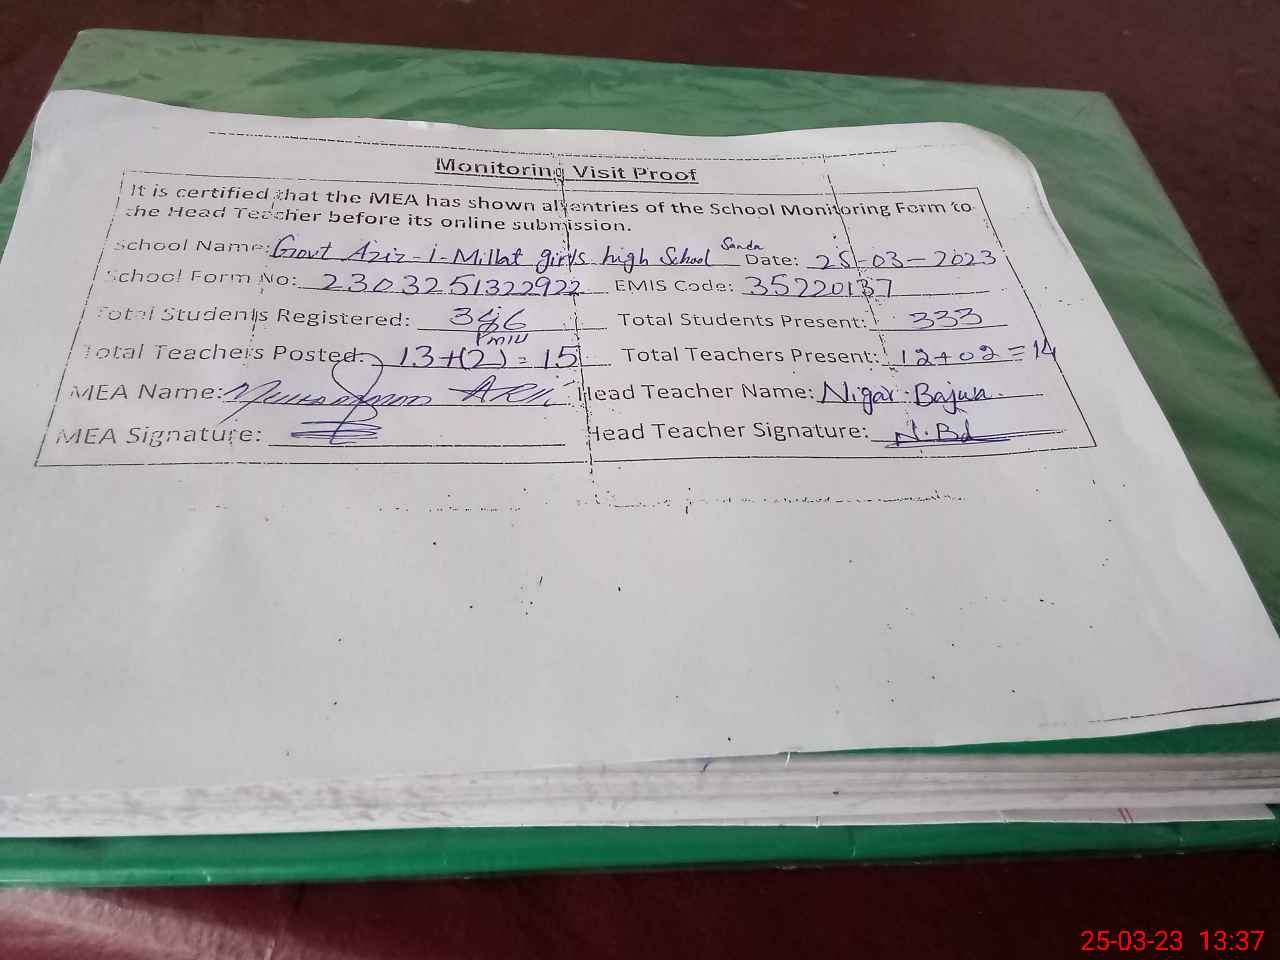 Monitoring Visit Proof
It is certified that the MEA has shown all entries of the School Monitoring Form to
the Head Teacher before its online submission.
School Name: Govt Aziz-i-Millat girls high School Sanda Date: 25-03-2023
School Form No: 2303251322922 EMIS Code: 35220137
Total Students Registered: Total Students Present: 333
Total Teachers Posted: 13+(2)=15 Total Teachers Present: 12+02=14
MEA Name: Head Teacher Name: Nigar Bajwa.
MEA Signature: Head Teacher Signature:
25-03-23 13:37